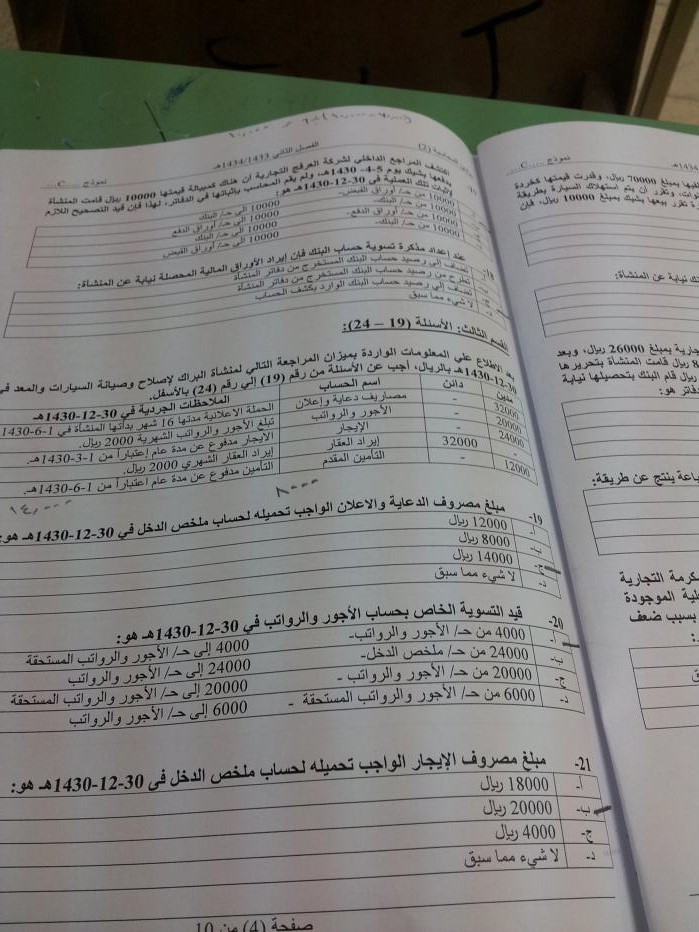 الفصل الثاني 1434/1433هـ
نموذج ....C...
اكتشف المراجع الداخلي لشركة العرفج التجارية أن هناك كمبيالة قيمتها 10000 ريال قامت المنشأة
بدفعها بشيك يوم 5-4-1430هـ، ولم يقم المحاسب بإثباتها في الدفاتر، لهذا فإن قيد التصحيح اللازم
لإثبات تلك العملية في 30-12-1430هـ هو:
10000 من حـ/ أوراق القبض- 10000 إلى حـ/ البنك
10000 من حـ/ البنك- 10000 إلى حـ/ أوراق الدفع
10000 من حـ/ أوراق الدفع- 10000 إلى حـ/ البنك
10000 من حـ/ البنك- 10000 إلى حـ/ أوراق القبض
18- عند إعداد مذكرة تسوية حساب البنك فإن إيراد الأوراق المالية المحصلة نيابة عن المنشأة:
تضاف إلى رصيد حساب البنك المستخرج من دفاتر المنشأة
تطرح من رصيد حساب البنك المستخرج من دفاتر المنشأة
تضاف إلى رصيد حساب البنك الوارد بكشف الحساب
د- لا شيء مما سبق
القسم الثالث: الأسئلة (19 – 24):
بعد الاطلاع على المعلومات الواردة بميزان المراجعة التالي لمنشأة البراك لإصلاح وصيانة السيارات والمعد في
30-12-1430هـ بالريال، أجب عن الأسئلة من رقم (19) إلى رقم (24) بالأسفل.
مدين دائن اسم الحساب الملاحظات الجردية في 30-12-1430هـ
32000 - مصاريف دعاية وإعلان الحملة الاعلانية مدتها 16 شهر بدأتها المنشأة في 1-6-1430
20000 - الأجور والرواتب تبلغ الأجور والرواتب الشهرية 2000 ريال.
24000 - الإيجار الايجار مدفوع عن مدة عام إعتباراً من 1-3-1430هـ.
- 32000 إيراد العقار إيراد العقار الشهري 2000 ريال.
12000 - التأمين المقدم التأمين مدفوع عن مدة عام اعتباراً من 1-6-1430هـ.
٨٠٠٠
١٤,٠٠٠
19- مبلغ مصروف الدعاية والاعلان الواجب تحميله لحساب ملخص الدخل في 30-12-1430هـ هو:
أ- 12000 ريال
ب- 8000 ريال
ج- 14000 ريال
د- لا شيء مما سبق
20- قيد التسوية الخاص بحساب الأجور والرواتب في 30-12-1430هـ هو:
أ- 4000 من حـ/ الأجور والرواتب- 4000 إلى حـ/ الأجور والرواتب المستحقة
ب- 24000 من حـ/ ملخص الدخل- 24000 إلى حـ/ الأجور والرواتب
ج- 20000 من حـ/ الأجور والرواتب - 20000 إلى حـ/ الأجور والرواتب المستحقة
د- 6000 من حـ/ الأجور والرواتب المستحقة - 6000 إلى حـ/ الأجور والرواتب
21- مبلغ مصروف الإيجار الواجب تحميله لحساب ملخص الدخل في 30-12-1430هـ هو:
أ- 18000 ريال
ب- 20000 ريال
ج- 4000 ريال
د- لا شيء مما سبق
صفحة (4) من 10
نموذج ....C...
بمبلغ 70000 ريال، وقدرت قيمتها كخردة
وتقرر أن يتم استهلاك السيارة بطريقة
تقرر بيعها بشيك بمبلغ 10000 ريال، فإن
نيابة عن المنشأة:
بمبلغ 26000 ريال، وبعد
ريال قامت المنشأة بتحريرها
ريال قام البنك بتحصيلها نيابة
هو:
ينتج عن طريقة:
التجارية
الموجودة
بسبب ضعف